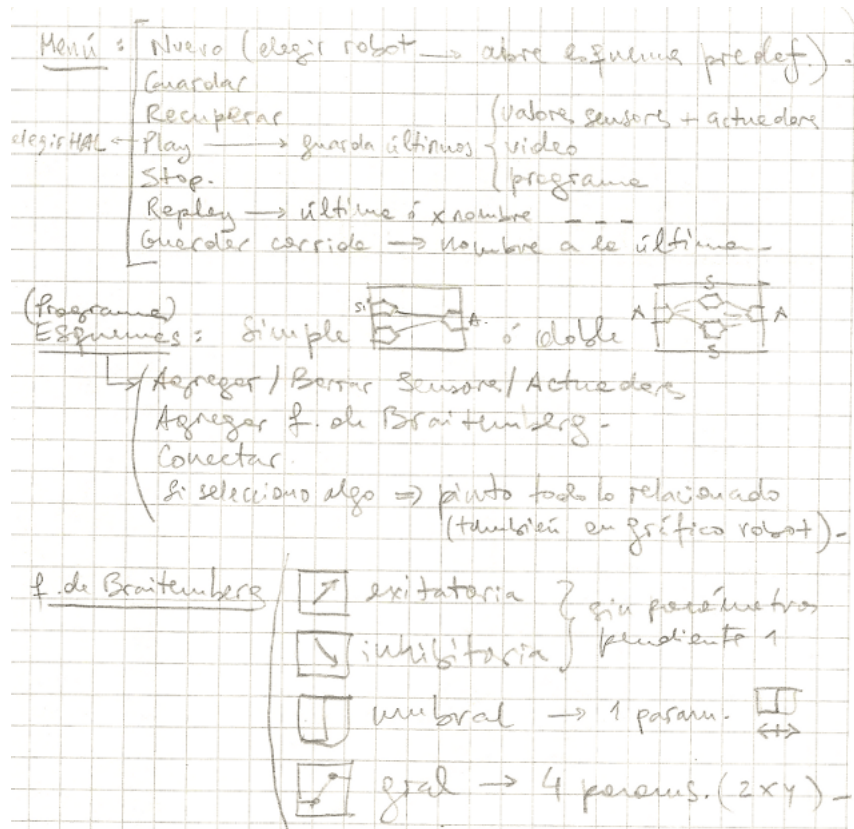 Menú : Nuevo (elegir robot → abre esquema predef.) .
Guardar
Recuperar
elegir HAL ← Play → guarda últimos { valores sensores + actuadores
video
programa
Stop.
Replay → última ó x nombre _ _ _
Guardar corrida → nombre a la última -
(Programa)
Esquemas : Simple ó doble
S A. A S S A
Agregar / Borrar Sensores / Actuadores
Agregar f. de Braitemberg -
Conectar.
Si selecciono algo ⇒ pinto todo lo relacionado
(también en gráfico robot) -
f. de Braitemberg
exitatoria } sin parámetros
inhibitoria } pendiente 1
umbral → 1 param.
gral → 4 params. (2 x y) -